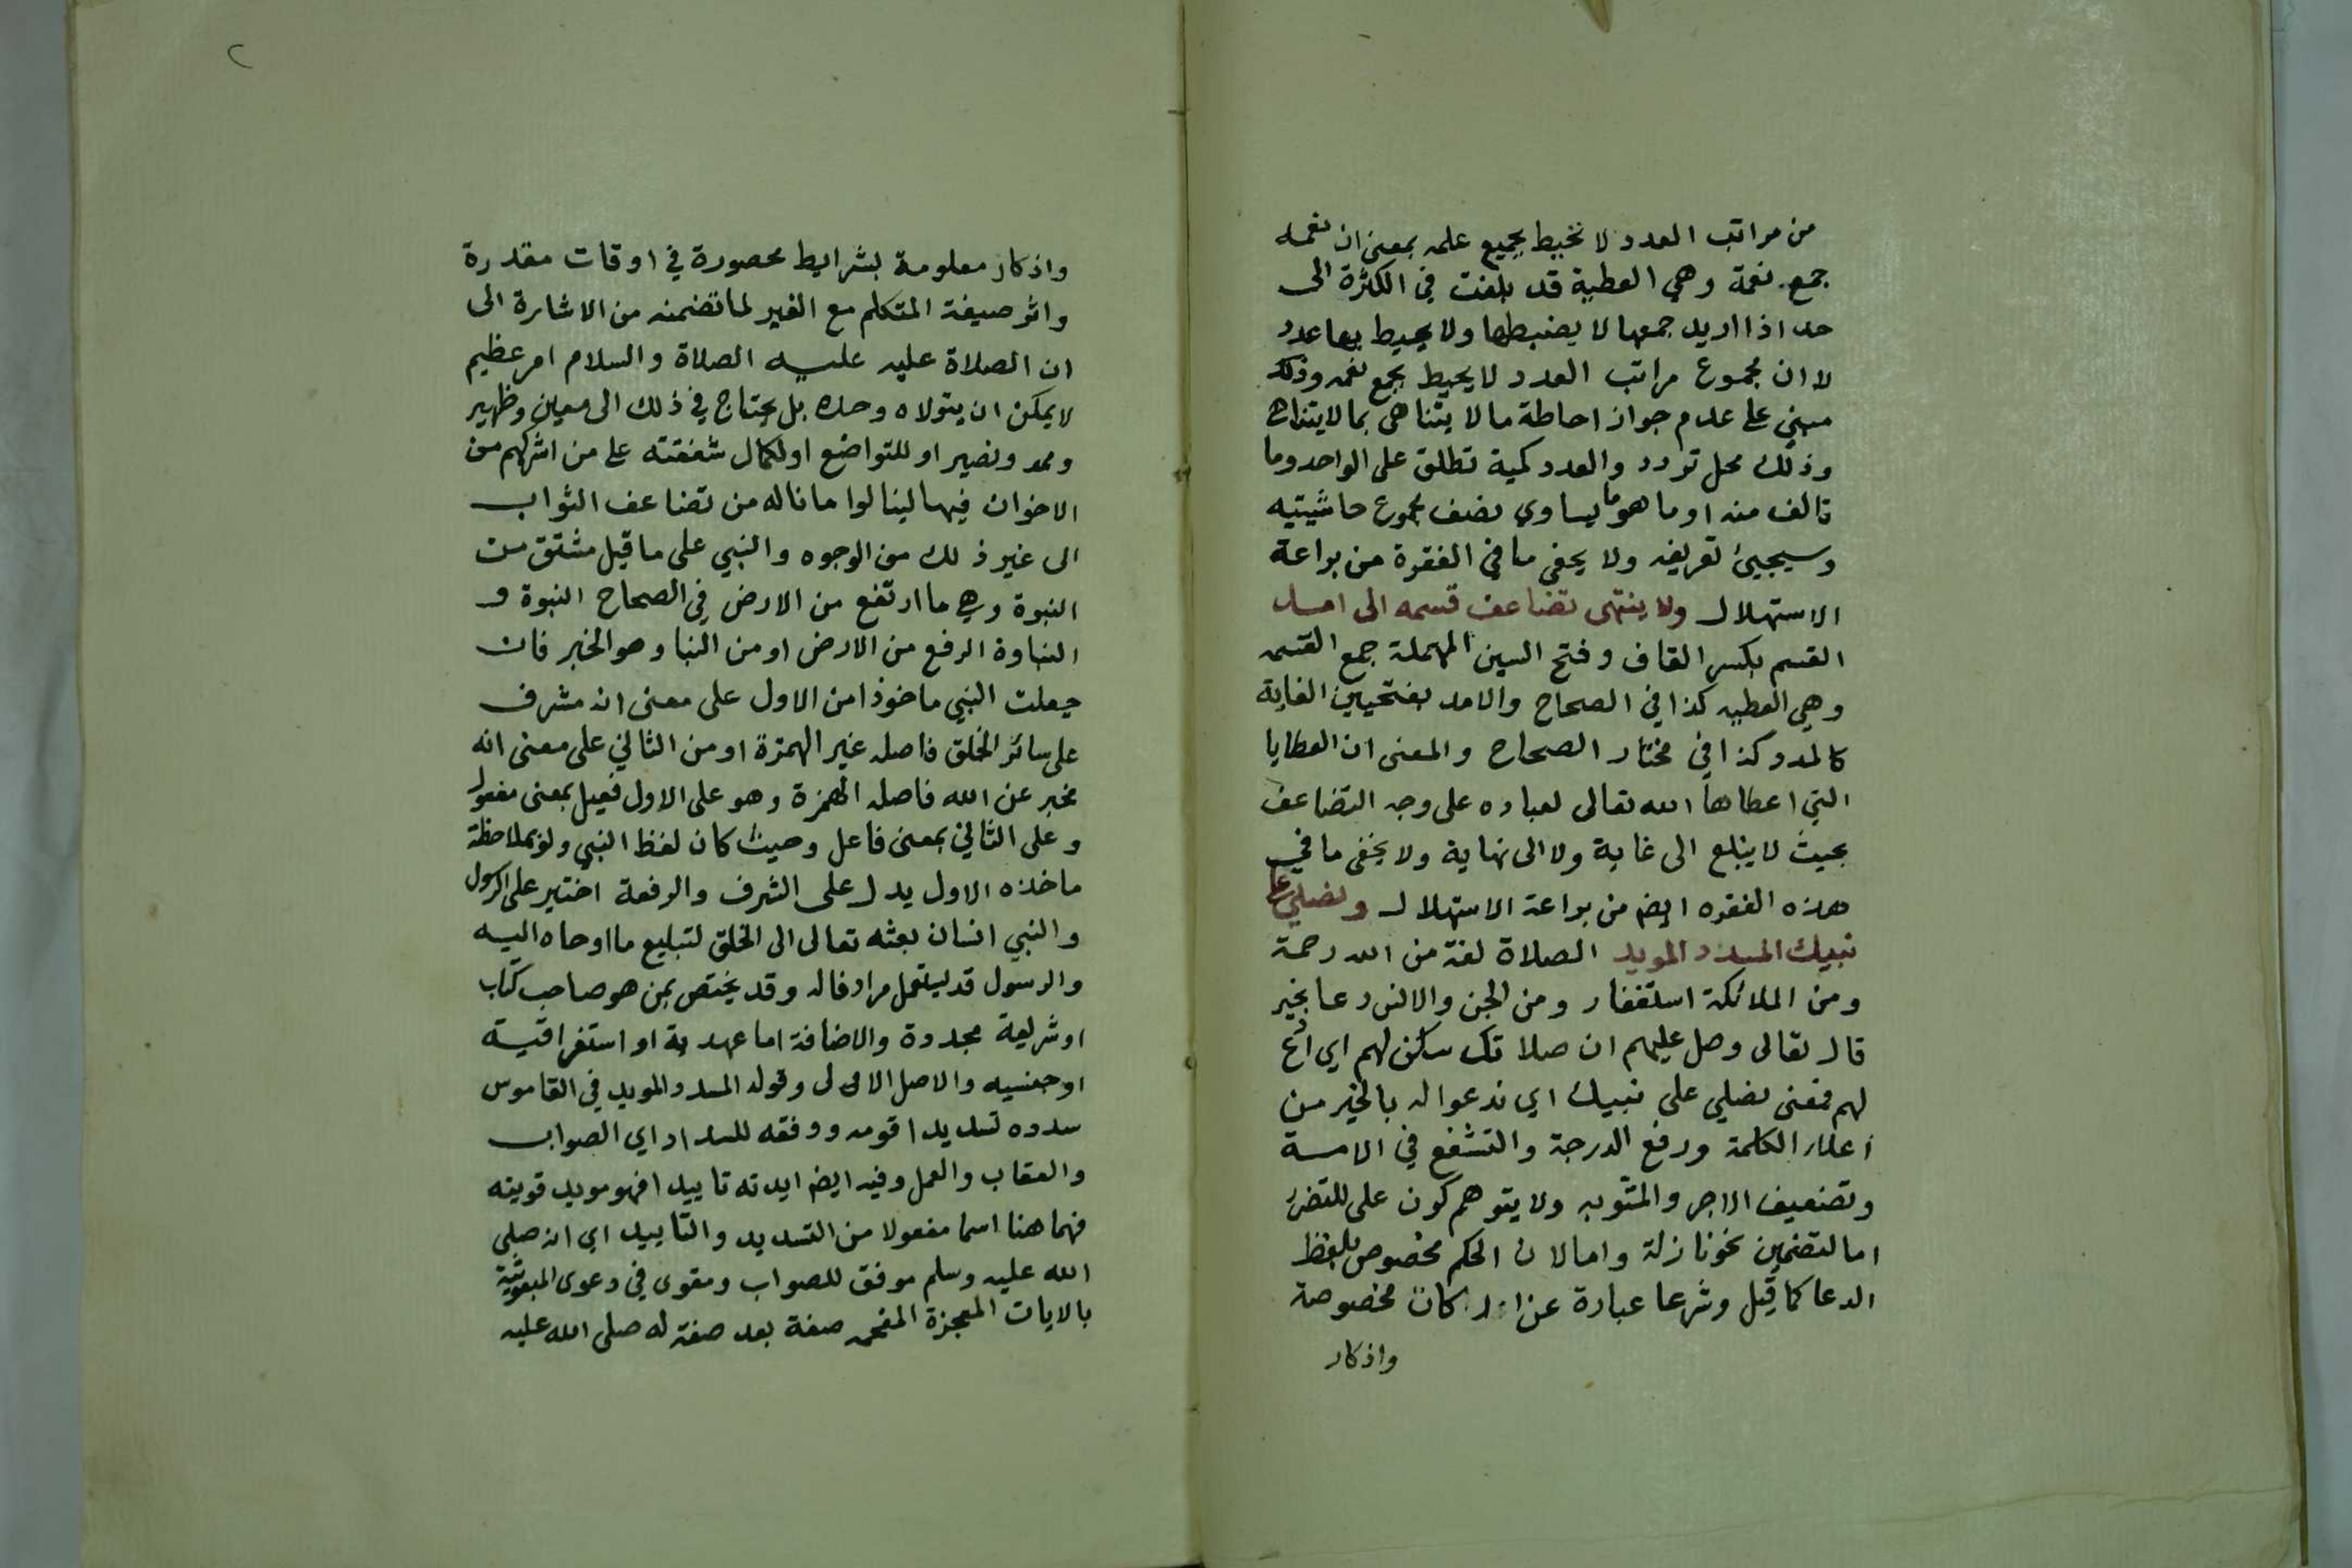 من مراتب العدد لا تحيط بجميع علمه بمعنى ان نعمه
جمع نعمة وهي العطية قد بلغت في الكثرة الى
حد اذا اريد جمعها لا يضبطها ولا يحيط بها عدد
لا ان مجموع مراتب العدد لا يحيط بجمع نعمه وذلك
مبني على عدم جواز احاطة ما لا يتناهى بما لا يتناهى
وذلك محل تردد والعدد كمية تطلق على الواحد وما
تالف منه او ما هو ما يساوي نصف مجموع حاشيتيه
وسيجيئ تعريفه ولا يخفى ما في الفقرة من براعة
الاستهلال ولا ينتهى تضاعف قسمه الى امد
القسم بكسر القاف وفتح السين المهملة جمع القسمه
وهي العطيه كذا في الصحاح والامد بفتحيين الغاية
كالمد وكذا في مختار الصحاح والمعنى ان العطايا
التي اعطاها الله تعالى لعباده على وجه التضاعف
بحيث لا يبلغ الى غاية ولا الى نهاية ولا يخفى ما في
هذه الفقره ايضم من براعة الاستهلال ونصلي على
نبيك المسدد المويد الصلاة لغة من الله رحمة
ومن الملائكة استغفار ومن الجن والانس دعا بخير
قال تعالى وصل عليهم ان صلاتك سكن لهم اي ادع
لهم فمعنى نصلي على نبيك اي ندعوا له بالخير من
اعلاء الكلمة ورفع الدرجة والتشفع في الامة
وتضعيف الاجر والمثوبه ولا يتوهم كون على للتضرر
اما لتضمين نحو نازلة واما لان الحكم مخصوص بلفظ
الدعا كما قيل وشرعا عبارة عن اركان مخصوصة
واذكار
٢
واذكار معلومة بشرايط محصورة في اوقات مقدرة
واثر صيغة المتكلم مع الغير لما تضمنه من الاشارة الى
ان الصلاة عليه عليه الصلاة والسلام امر عظيم
لا يمكن ان يتولاه وحده بل يحتاج في ذلك الى معين وظهير
وممد ونصير او للتواضع او لكمال شفقته على من اشركهم من
الاخوان فيها لينالوا ما ناله من تضاعف الثواب
الى غير ذلك من الوجوه والنبي على ما قيل مشتق من
النبوة وهي ما ارتفع من الارض في الصحاح النبوة و
النباوة الرفع من الارض او من النبا وهو الخبر فان
جعلت النبي ماخوذا من الاول على معنى انه مشرف
على سائر الخلق فاصله غير الهمزة او من الثاني على معنى انه
مخبر عن الله فاصله الهمزة وهو على الاول فعيل بمعنى مفعول
وعلى الثاني بمعنى فاعل وحيث كان لفظ النبي ولو بملاحظة
ماخذه الاول يدل على الشرف والرفعة اختير على الرسول
والنبي انسان بعثه تعالى الى الخلق لتبليغ ما اوحاه اليه
والرسول قد يستعمل مرادفا له وقد يختص بمن هو صاحب كتاب
او شريعة مجددة والاضافة اما عهدية او استغراقية
او جنسيه والاصل الاولى وقوله المسدد المويد في القاموس
سدده تسديدا قومه ووفقه للسداد اي الصواب
والعقاب والعمل وفيه ايضم ايدته تاييدا فهو مويد قويته
فهما هنا اسما مفعولا من التسديد والتاييد اي انه صلى
الله عليه وسلم موفق للصواب ومقوى في دعوى المبعوثية
بالايات المعجزة المفحمه صفة بعد صفة له صلى الله عليه